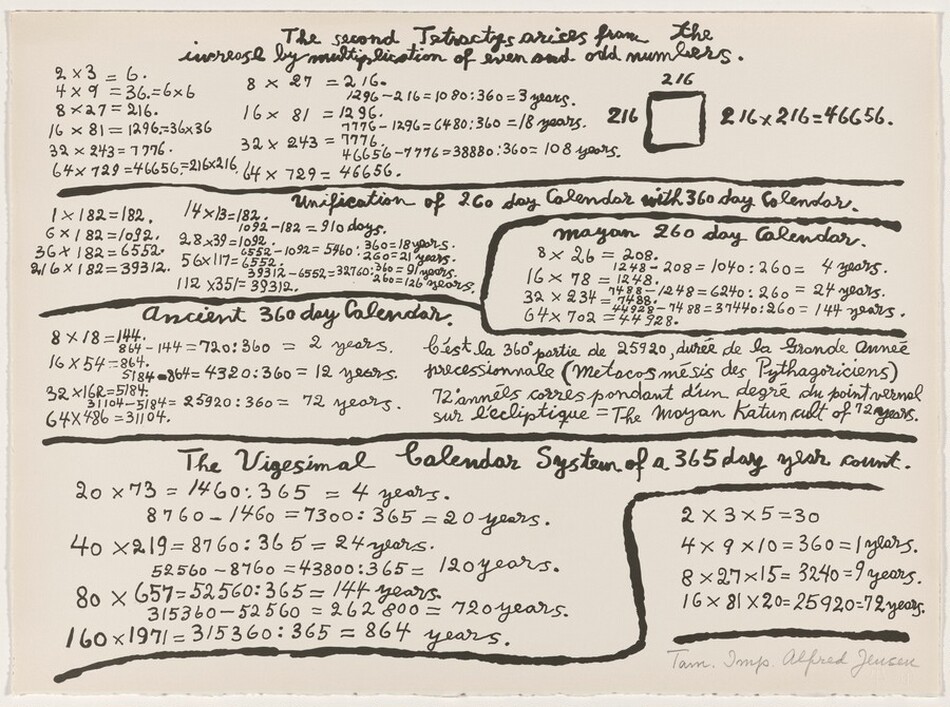 The second Tetractys arises from the
increase by multiplication of even and odd numbers.
2 × 3 = 6.
4 × 9 = 36.=6×6
8×27=216.
16 × 81=1296.=36×36
32 × 243=7776.
64×729=46656.=216×216.
8 × 27 = 216.
1296-216=1080:360=3 years.
16 × 81 = 1296.
7776-1296=6480:360=18 years.
32 × 243 = 7776.
46656-7776=38880:360=108 years.
64 × 729 = 46656.
216
216
216×216=46656.
Unification of 260 day Calendar with 360 day Calendar.
1 × 182=182.
6 × 182=1092.
36 × 182=6552.
216 × 182=39312.
14×13=182.
1092-182=910 days.
28×39=1092.
6552-1092=5460:360=18 years.
260=21 years.
56×117=6552.
39312-6552=32760:360=91 years.
260=126 years.
112 ×351=39312.
Mayan 260 day Calendar.
8 × 26 = 208.
1248-208=1040:260= 4 years.
16 × 78 = 1248.
7488-1248=6240:260=24 years.
32 × 234=7488.
44928-7488=37440:260=144 years.
64× 702=44928.
Ancient 360 day Calendar.
8 × 18=144.
864-144=720:360 = 2 years.
16 ×54=864.
5184-864=4320:360=12 years.
32 ×162=5184.
31104-5184=25920:360= 72 years.
64×486=31104.
C'est la 360° partie de 25920, durée de la Grande Année
precessionnale (Metacosmésis des Pythagoriciens)
72 années correspondant d'un degré du point vernal
sur l'écliptique = The Mayan Katun cult of 72 years.
The Vigesimal Calendar System of a 365 day year count.
20 ×73 = 1460:365 = 4 years.
8760-1460=7300:365=20 years.
40 ×219=8760:365 = 24 years.
52560-8760=43800:365= 120 years.
80 × 657=52560:365=144 years.
315360-52560 = 262800=720 years.
160×1971=315360:365 = 864 years.
2 × 3 × 5=30
4 × 9 ×10=360=1 years.
8×27×15=3240=9 years.
16 × 81 ×20=25920=72 years.
Tam. Imp. Alfred Jensen